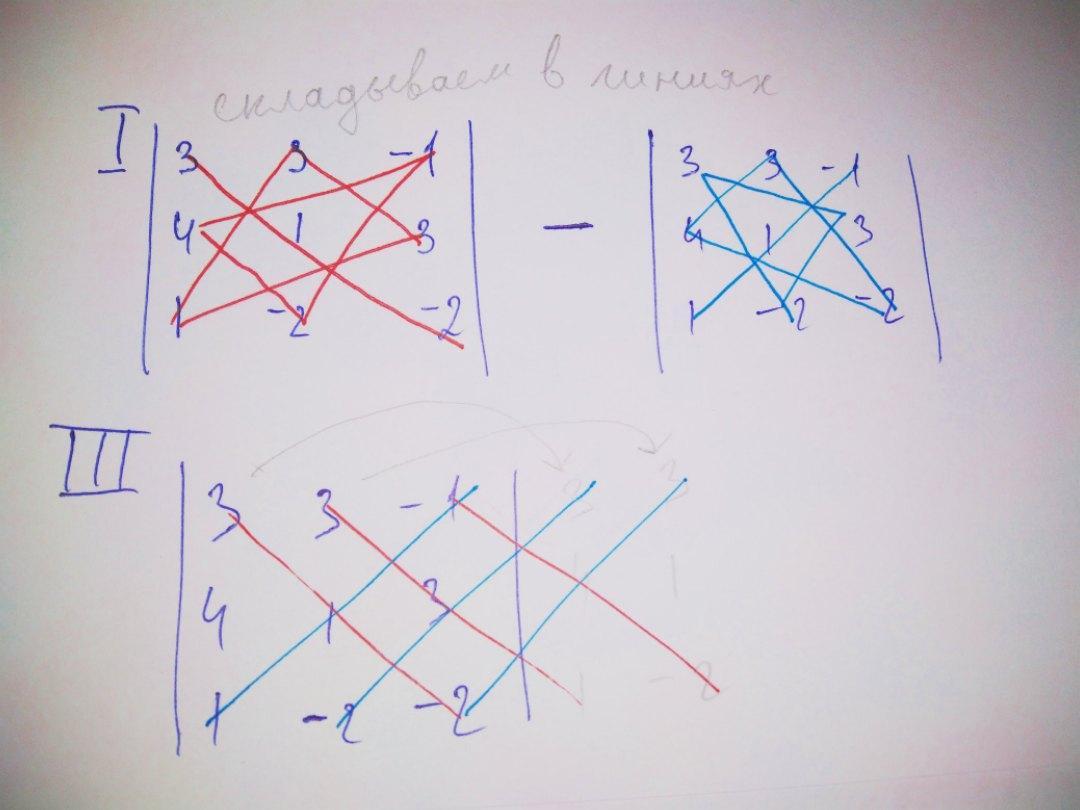 складываем в линиях
I 3 3 -1 — 3 3 -1
4 1 3 4 1 3
1 -2 -2 1 -2 -2
III 3 3 -1 3 3
4 1 3 1
1 -2 -2 1 -2